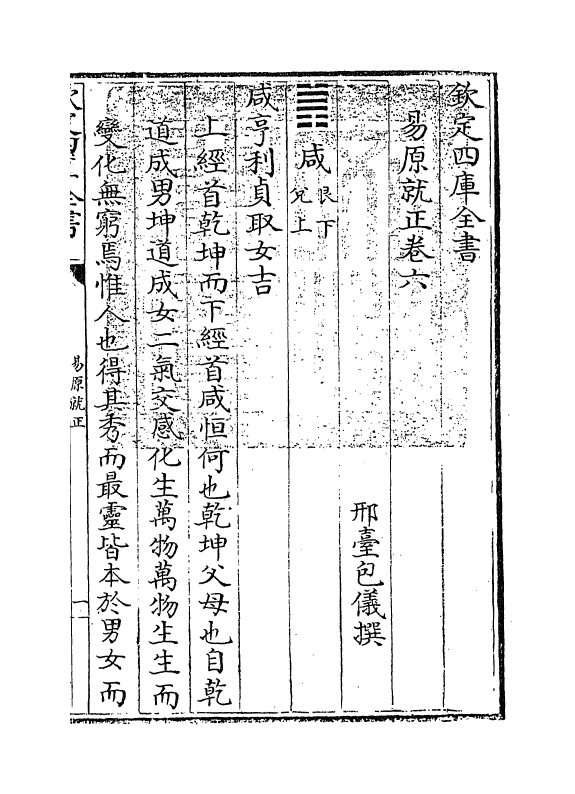 欽定四庫全書
易原就正卷六
邢臺包儀撰
䷞咸艮下兌上
咸亨利貞取女吉
上經首乾坤而下經首咸恒何也乾坤父母也自乾
道成男坤道成女二氣交感化生萬物萬物生生而
變化無窮焉惟人也得其秀而最靈皆本於男女而
易原就正